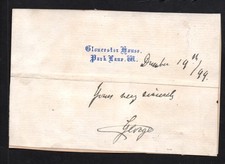 Gloucester House,
Park Lane. W.
December 19th/99.
Yours very sincerely
George